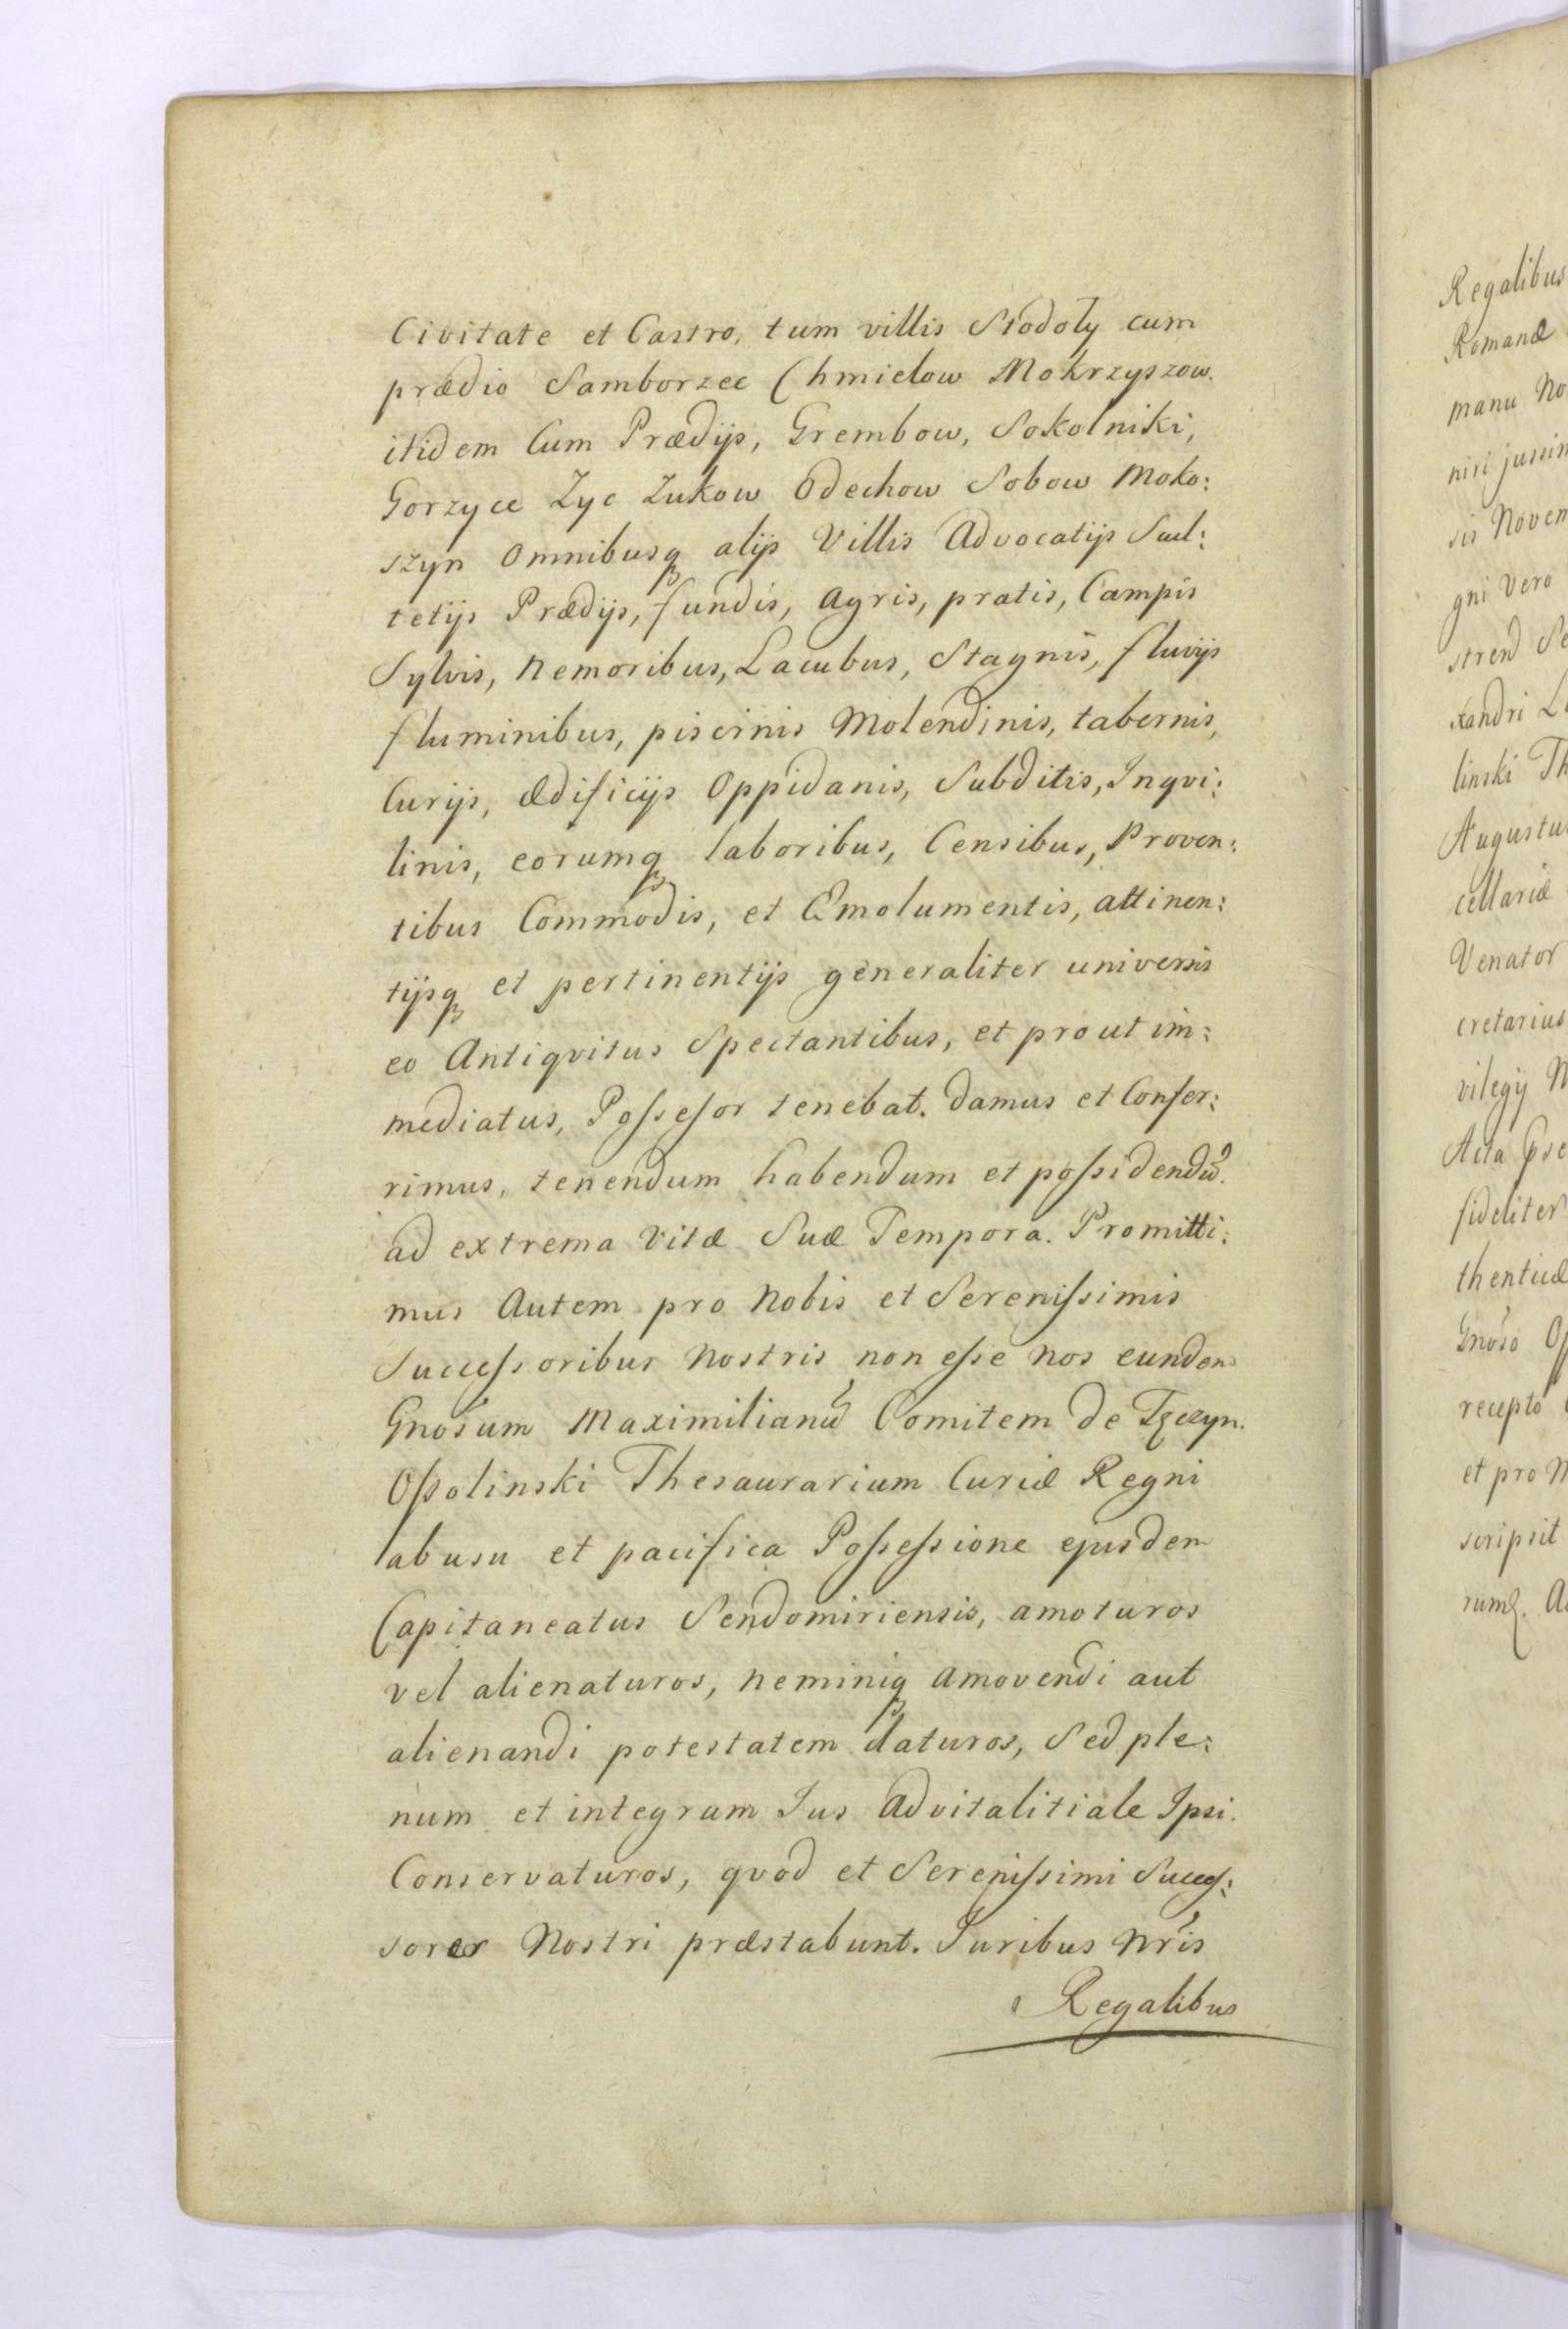 Civitate et Castro, tum villis Stodoły cum
prædio Samborzec Chmielow Mokrzyszow.
itidem Cum Prædijs, Grembow, Sokolniki,
Gorzyce Zyc Zukow Odechow Sobow Moko:
szyn omnibusq alijs Villis Advocatijs Scul:
tetijs Prædijs, fundis, Agris, pratis, Campis
Sylvis, Nemoribus, Lacubus, Stagnis, fluvijs
fluminibus, piscinis Molendinis, tabernis,
Curijs, ædificijs Oppidanis, Subditis, Inqvi:
linis, eorumq laboribus, Censibus, Proven:
tibus Commodis, et Emolumentis, attinen:
tijsq et pertinentijs generaliter universis
eo Antiqvitus Spectantibus, et prout im:
mediatus, Possessor tenebat. Damus et Confer:
rimus, tenendum habendum et possidendũ.
ad extrema Vitæ Suæ Tempora. Promitti:
mus Autem pro Nobis et Serenissimis
Successoribus Nostris non esse nos eundem
Gnosum Maximilianũ Comitem de Tęczyn.
Ossolinski Thesaurarium Curiæ Regni
ab usu et pacifica Possessione ejusdem
Capitaneatus Sendomiriensis, amoturos
vel alienaturos, neminiq amovendi aut
alienandi potestatem daturos, Sed ple:
num et integrum Jus Advitalitiale Ipsi.
Conservaturos, qvod et Serenissimi Succes:
sores Nostri præstabunt. Juribus Nris
Regalibus
Regalibus
Romanæ
manu No
niri jussim
sis Novem
gni vero
strend Se
xandri L
linski Th
Augustus
cellariæ
Venator
cretarius
vilegij N
Acta
fideliter
thenticæ
Gnoso O
recepto
et pro N
scripsit
rumq. A